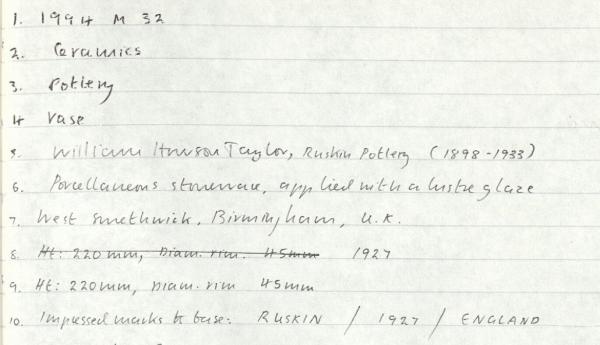 1. 1994 M 32
2. Ceramics
3. Pottery
4 Vase
5. William Howson Taylor, Ruskin Pottery (1898-1933)
6. Porcellaneous stoneware, applied with a lustre glaze
7. West Smethwick, Birmingham, U.K.
8. Ht: 220mm, Diam. rim. 45mm 1927
9. Ht: 220mm, Diam. rim 45mm
10. Impressed marks to base: RUSKIN / 1927 / ENGLAND